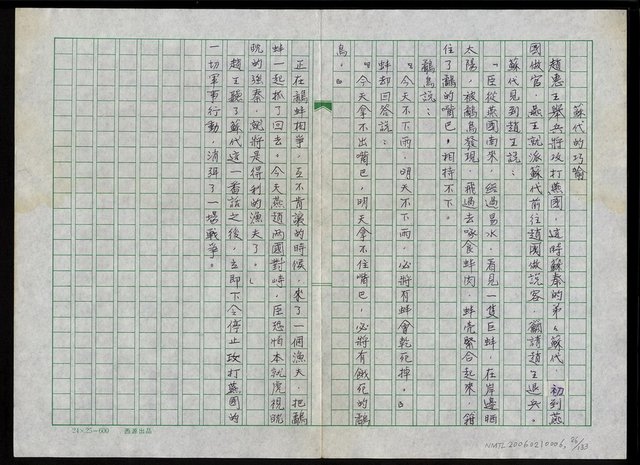 蘇代的巧喻
趙惠王舉兵將攻打燕國,這時蘇秦的弟弟蘇代,初到燕
國做官,燕王就派蘇代前往趙國做說客,勸請趙王退兵。
蘇代見到趙王說:
「臣從燕國南來,經過易水,看見一隻巨蚌,在岸邊晒
太陽,被鷸鳥發現,飛過去啄食蚌肉,蚌壳緊合起來,箝
住了鷸的嘴巴,相持不下。
鷸鳥說:
『今天不下雨,明天不下雨,必將有蚌會乾死掉。』
蚌却回答說:
『今天拿不出嘴巴,明天拿不住嘴巴,必將有餓死的鷸
鳥。』
正在鷸蚌相爭,互不肯讓的時候,來了一個漁夫,把鷸
蚌一起抓了回去。今天燕趙两國對峙,臣恐怕本就虎視眈
眈的強秦,就將是得利的漁夫了。」
趙王聽了蘇代這一番話之後,立即下令停止攻打燕國的
一切軍事行動,消弭了一場戰爭。
24×25=600 西源出品
NMTL 20060210006, 86/133